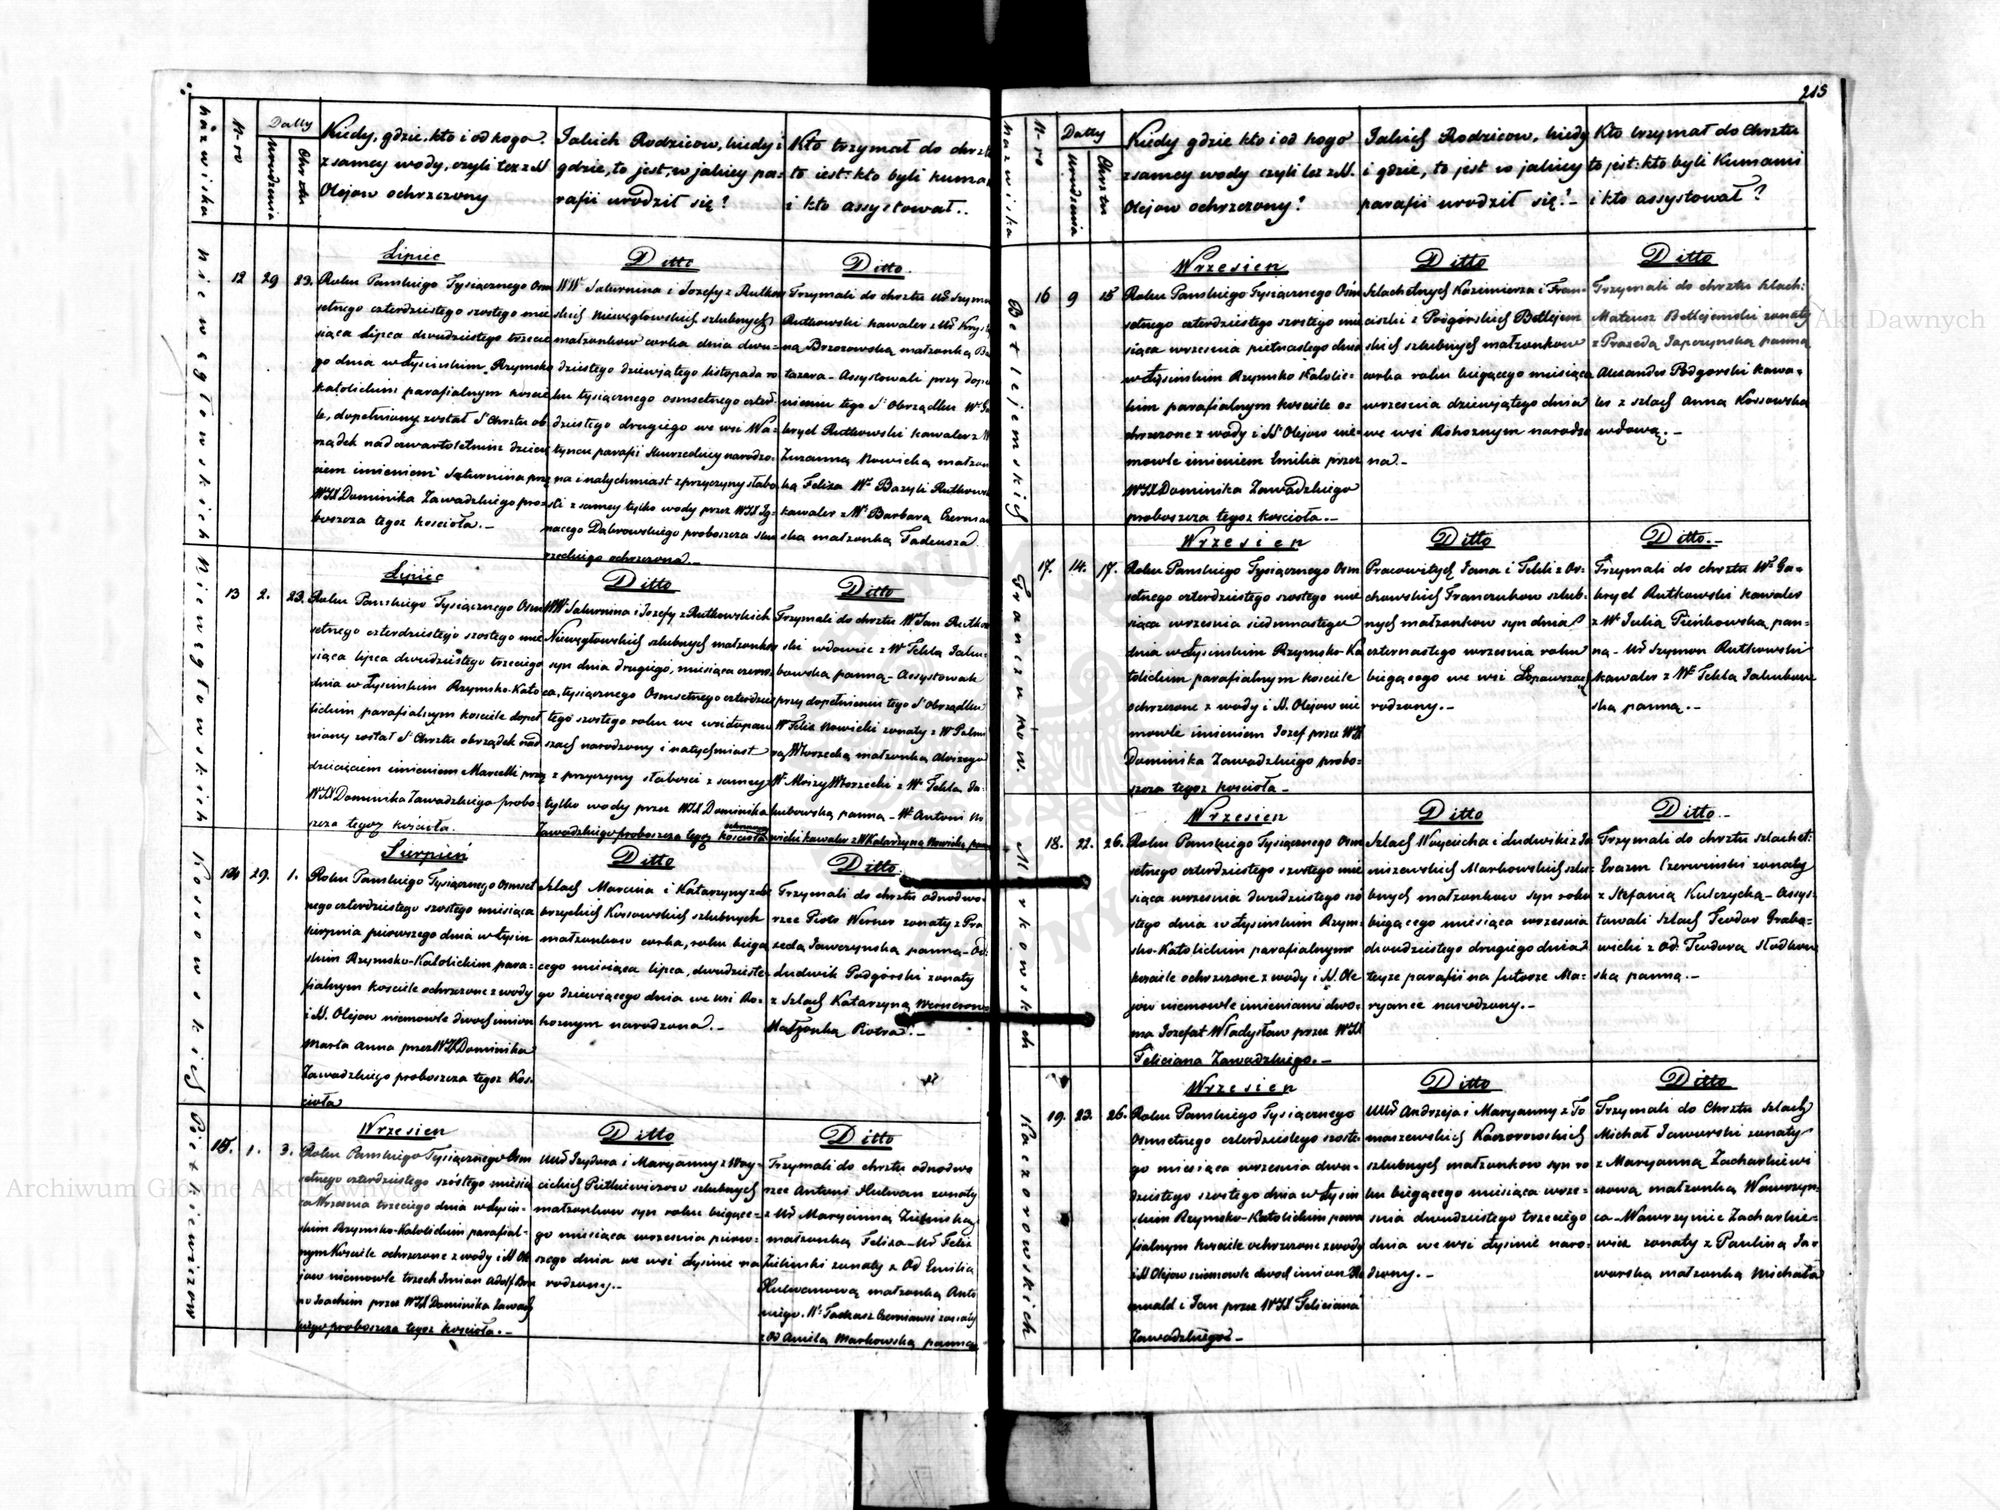 215
Nazwiska
N-ro
Datty
Urodzenia
Chrztu
Kiedy, gdzie, kto i od kogo
z samey wody, czyli tez z SS.
Olejow ochrzczony
Jakich Rodzicow, kiedy i
gdzie, to jest, w jakiey pa=
rafii urodził się?
Kto trzymał do chrztu
to iest: kto byli kuma
i kto assystował..
Niewęgłowskich
12
29
23.
Lipiec
Roku Panskiego Tysiącznego Osm
setnego czterdziestego szostego mie
siąca Lipca dwudziestego trzecie
go dnia w Łysinskim Rzymsko
katolickim parafialnym koscie
le, dopełniony został S. Chrztu ob
rządek nad czwartoletnim dziecię
ciem imieniem Saturnina przez
WJX Dominika Zawadzkiego pro=
boszcza tegoz kościoła. -
Ditto
WW Saturnina i Jozefy z Rutkow
skich Niewęgłowskich szlubnych
małzonkow corka dnia dwu=
dziestego dziewiątego listopada ro
ku tysiącznego osmsetnego czter=
dziestego drugiego we wsi Wa=
tyncu parafii Skurzeckiey narodzo=
na i natychmiast z przyczyny słabo
sci z samey tylko wody przez WJX Ig=
nacego Dabrowskiego proboszcza Sku
rzeckiego ochrzczona. -
Ditto.
Trzymali do chrztu Ur. Szymon
Rutkowski kawaler z Ur. Krys
ną Brzozowską małzonką Ba
tazara - Assystowali przy dope
nieniu tego S. Obrządku W. Ga
bryel Rutkowski kawaler z W
Zuzanną Nowicką małzon
ką Felixa W. Bazyli Rutkows
kawaler z W. Barbarą Czermin
ska małzonką Tadeusza.
Niewęgłowskich
13
2.
23.
Lipiec
Roku Panskiego Tysiącznego Osm
setnego czterdziestego szostego mie
siąca lipca dwudziestego trzeciego
dnia w Łysinskim Rzymsko-Kato
lickim parafialnym kosciele dopeł
niony został S. Chrztu obrządek nad
dziecięciem imieniem Marcelli przez
WJX Dominika Zawadzkiego probo=
szcza tegoz kościoła.
Ditto
WW Saturnina i Jozefy z Rutkowskich
Niewęgłowskich szlubnych małzonkow
syn dnia drugiego, miesiąca czerw
ca, tysiącznego Osmsetnego czterdzies
tego szostego roku we wsi Łopaw
szach narodzony i natychmiast
z przyczyny słabosci z samey
tylko wody przez WJX Dominika
Zawadzkiego proboszcza tegoz kościoła ochrzczony
Ditto
Trzymali do chrztu W. Jan Rutkow
ski wdowiec z W. Teklą Jaku=
bowską panną - Assystowali
przy dopełnieniu tego S. Obrządku
W. Felix Nowicki zonaty z W. Palmi
rą Worzecką małzonką Aloizego
W. Aloizy Worzecki z W. Teklą Ja=
kubowską panną - W. Antoni No
wicki kawaler z W Katarzyną Nowicką panną
Kossowskich
14
29.
1.
Sierpień
Roku Panskiego Tysiącznego Osmset
nego czterdziestego szostego miesiąca
sierpnia pierwszego dnia w Łysin
skim Rzymsko-Katolickim para=
fialnym kosciele ochrzczone z wody
i SS. Olejow niemowle dwoch imion
Marta Anna przez WJX Dominika
Zawadzkiego proboszcza tegoz Kos=
cioła
Ditto
Szlach Marcina i Katarzyny z Za
brzyckich Kossowskich szlubnych
małzonkow corka, roku bieżą
cego miesiąca lipca, dwudzieste
go dziewiątego dnia we wsi Ro=
hoznym narodzona. -
Ditto.
Trzymali do chrztu odnodwo=
rzec Piotr Werner zonaty z Pra
xedą Jaworzynską panną - Od.
Ludwik Podgórski zonaty
z Szlach Katarzyną Wernerową
Małzonką Piotra. -
Pietkiewiczow
15.
1.
3.
Wrzesien
Roku Panskiego Tysiącznego Osm
setnego czterdziestego szostego miesią
ca Wrzesnia trzeciego dnia w Łysin=
skim Rzymsko-Katolickim parafial=
nym Kosciele ochrzczone z wody i SS Ole
jow niemowle trzech Imion Adolf Bru
no Joachim przez WJX Dominika Zawadz
kiego proboszcza tegoz kościoła. -
Ditto
Ur. Izydora i Maryanny z Woy=
cickich Pietkiewiczow szlubnych
małzonkow syn roku biegące=
go miesiąca wrzesnia pierw=
szego dnia we wsi Łysinie na
rodzony. -
Ditto
Trzymali do chrztu odnodwo
rzec Antoni Hulwan zonaty
z Ur Maryanną Zielinską
małzonką Felixa - Ur Felix
Zielinski zonaty z Od Emilią
Hulwanową małzonką Anto
niego. W. Tadeusz Czerminski zonaty
z Od Amilą Markowską panną
Nazwiska
N-ro
Datty
Urodzenia
Chrztu
Kiedy gdzie kto i od kogo
z samey wody czyli tez z SS.
Olejow ochrzczony?
Jakich Rodzicow, kiedy
i gdzie, to jest w jakiey
parafii urodził się? -
Kto trzymał do Chrztu
to jest: kto byli Kumami
i kto assystował?
Betlejemskich
16
9
15
Wrzesien
Roku Panskiego Tysiącznego Osm
setnego czterdziestego szostego mie
siąca wrzesnia pietnastego dnia
w Łysinskim Rzymsko Katolic=
kim parafialnym kosciele o=
chrzczone z wody i SS Olejow nie=
mowle imieniem Emilia przez
WJX Dominika Zawadzkiego
proboszcza tegoz kościoła. -
Ditto
Szlachetnych Kazimierza i Fran=
ciszki z Podgórskich Betlejem
skich szlubnych małzonkow
corka roku biegącego miesiąca
wrzesnia dziewiątego dnia
we wsi Rohoznym narodzo
na. -
Ditto
Trzymali do chrztu Szlach:
Mateusz Betlejemski zonaty
z Praxedą Japczynską panną
Alexander Podgorski kawa=
ler z szlach Anną Kossowską
wdową. -
Franczukow.
17.
14.
17.
Wrzesien
Roku Panskiego Tysiącznego Osm
setnego czterdziestego szostego mie
siąca wrzesnia siedmnastego
dnia w Łysinskim Rzymsko-Ka
tolickim parafialnym kosciele
ochrzczone z wody i SS. Olejow nie
mowle imieniem Jozef przez WJX
Dominika Zawadzkiego probo=
szcza tegoz kościoła -
Ditto
Pracowitych Jana i Tekli z Or=
chowskich Franczukow szlub=
nych małzonkow syn dnia
czternastego wrzesnia roku
biegącego we wsi Łopawszach
rodzony. -
Ditto. -
Trzymali do chrztu W. Ga=
bryel Rutkowski kawaler
z W. Julią Pieńkowską pan=
ną - Ur Szymon Rutkowski
kawaler z W. Teklą Jakubow
ską panną. -
Markowskich
18.
22.
26.
Wrzesien
Roku Panskiego Tysiącznego Osm
setnego czterdziestego szostego mie
siąca wrzesnia dwudziestego szó
stego dnia w Łysinskim Rzym=
sko-Katolickim parafialnym
kosciele ochrzczone z wody i SS. Ole
jow niemowle imieniami dwo=
ma Jozefat Władysław przez WJX
Feliciana Zawadzkiego. -
Ditto
Szlach Woyciecha i Ludwiki z Ja
niszewskich Markowskich szlu=
bnych małzonkow syn roku
biegącego miesiąca wrzesnia
dwudziestego drugiego dnia
teyze parafii na futorze Ma=
ryance narodzony. -
Ditto. -
Trzymali do chrztu szlachet:
Erazm Czerwinski zonaty
z Stefanią Kulczycką - Assys=
towali Szlach Teodor Graba=
wicki z Od. Teodorą Słodkow
ską panną. -
Kaczorowskich
19.
23.
26.
Wrzesien
Roku Panskiego Tysiącznego
Osmsetnego czterdziestego szoste=
go miesiąca wrzesnia dwu=
dziestego szostego dnia w Łysin
skim Rzymsko-Katolickim para
fialnym kosciele ochrzczone z wody
i SS Olejow niemowle dwoch imion Ro
muald i Jan przez WJX Feliciana
Zawadzkiego -
Ditto
Ur Andrzeja i Maryanny z To
maszewskich Kaczorowskich
szlubnych małzonkow syn ro
ku biegącego miesiąca wrze=
snia dwudziestego trzeciego
dnia we wsi Łysinie naro=
dzony. -
Ditto
Trzymali do Chrztu szlach
Michał Jaworski zonaty
z Maryanną Zacharkiewi
czową małzonką Wawrzyn=
ca - Wawrzyniec Zacharkie=
wicz zonaty z Pauliną Ja=
worską małzonką Michała
Archiwum Główne Akt Dawnych
Archiwum Główne Akt Dawnych